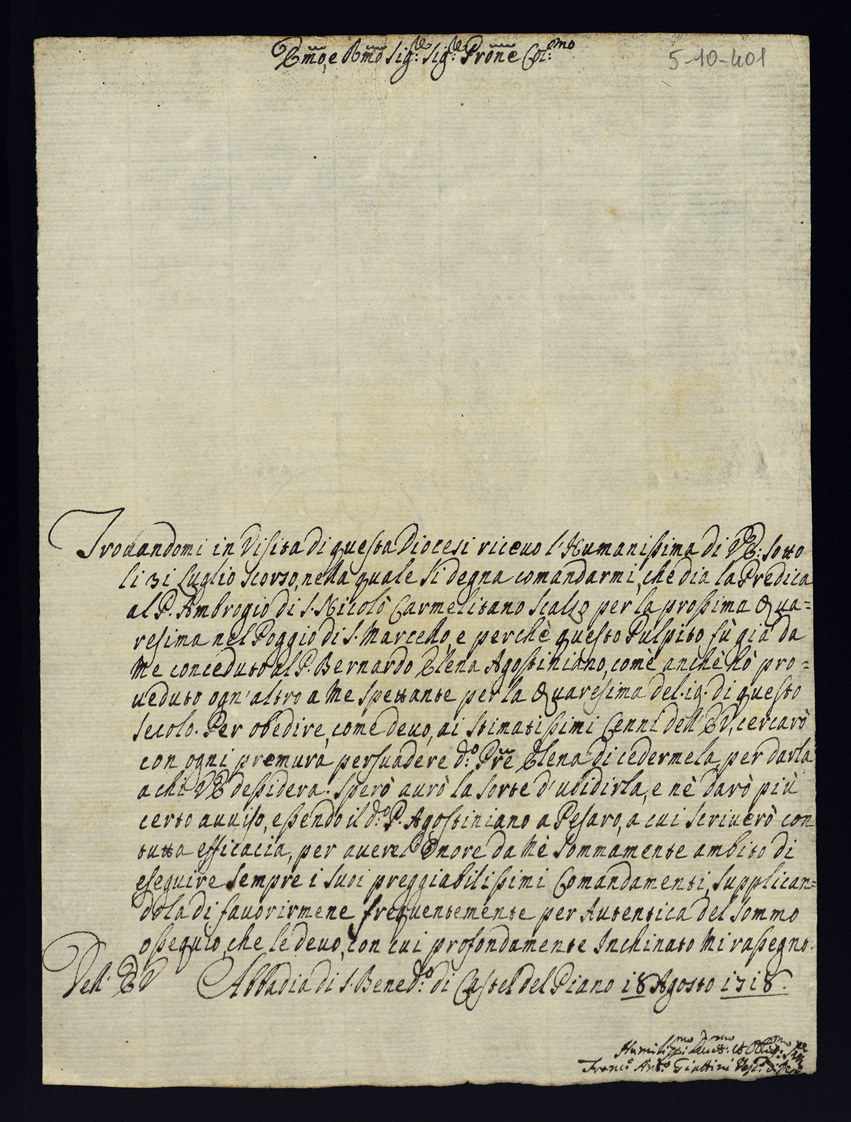 Emo, e Rmo Sig.re Sig.re Prone Col.mo
5-10-401
Trovandomi in Visita di questa Diocesi ricevo l'Humanissima di VE: sotto
li 31 Luglio scorso, nella quale si degna comandarmi, che dia la Predica
al P. Ambrogio di S. Nicolò Carmelitano Scalzo per la prossima Qua=
resima nel Poggio di S. Marcello, e perchè questo Pulpito fù già da
Me conceduto al P. Bernardo Elena Agostiniano, com'è anchè hò pro=
veduto ogn'altro a Me spettante per la Quaresima del .19. di questo
secolo. Per obedire, come devo, ai stimatissimi Cenni dell'EV, cercarò
con ogni premura persuadere d.o Pre Elena di cedermela, per darla
a chi VE dessidera. Sperò avrò la sorte d'ubidirla, e nè darò più
certo avviso, essendo il d.o P. Agostiniano a Pesaro, a cui scriverò con
tutta efficacia, per avere l'Onore da Mè sommamente ambito di
eseguire sempre i suoi preggiabilissimi Comandamenti, supplican=
dola di favorirmene frequentemente per Autentica del sommo
ossequio, che le devo, con cui profondamente Inchinato Mi rassegno.
Dell' EV Abbadia di S. Bened.o di Castel del Piano 18 Agosto 1718.
Humiliss.mo
Franc.o Ant.o Giattini